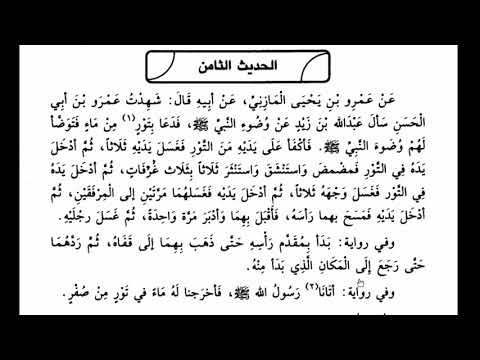 الحديث الثامن
عَنْ عَمْرِو بْنِ يَحْيَى الْمَازِنِيِّ، عَنْ أَبِيهِ قَالَ: شَهِدْتُ عَمْرَو بْنَ أَبِي
الْحَسَنِ سَأَلَ عَبْدَاللهِ بْنَ زَيْدٍ عَنْ وُضُوءِ النَّبِيِّ ﷺ، فَدَعَا بِتَوْرٍ(١) مِنْ مَاءٍ فَتَوَضَّأَ
لَهُمْ وُضُوءَ النَّبِيِّ ﷺ. فَأَكْفَأَ عَلَى يَدَيْهِ مِنَ التَّوْرِ فَغَسَلَ يَدَيْهِ ثَلَاثاً، ثُمَّ أَدْخَلَ
يَدَهُ فِي التَّوْرِ فَمَضْمَضَ وَاسْتَنْشَقَ وَاسْتَنْثَرَ ثَلَاثاً بِثَلَاثِ غَرْفَاتٍ، ثُمَّ أَدْخَلَ يَدَهُ
فِي التَّوْرِ فَغَسَلَ وَجْهَهُ ثَلَاثاً، ثُمَّ أَدْخَلَ يَدَيْهِ فَغَسَلَهُمَا مَرَّتَيْنِ إِلَى الْمِرْفَقَيْنِ، ثُمَّ
أَدْخَلَ يَدَيْهِ فَمَسَحَ بِهِما رَأْسَهُ، فَأَقْبَلَ بِهِمَا وَأَدْبَرَ مَرَّةً وَاحِدَةً، ثُمَّ غَسَلَ رِجْلَيْهِ.
وفي رواية: بَدَأَ بِمُقَدَّمِ رَأْسِهِ حَتَّى ذَهَبَ بِهِمَا إِلَى قَفَاهُ، ثُمَّ رَدَّهُمَا
حَتَّى رَجَعَ إِلَى الْمَكَانِ الَّذِي بَدَأَ مِنْهُ.
وفي رواية: أَتَانَا(٢) رَسُولُ الله ﷺ، فَأَخرَجنا لَهُ مَاءً في تَوْرٍ مِنْ صُفْرٍ.